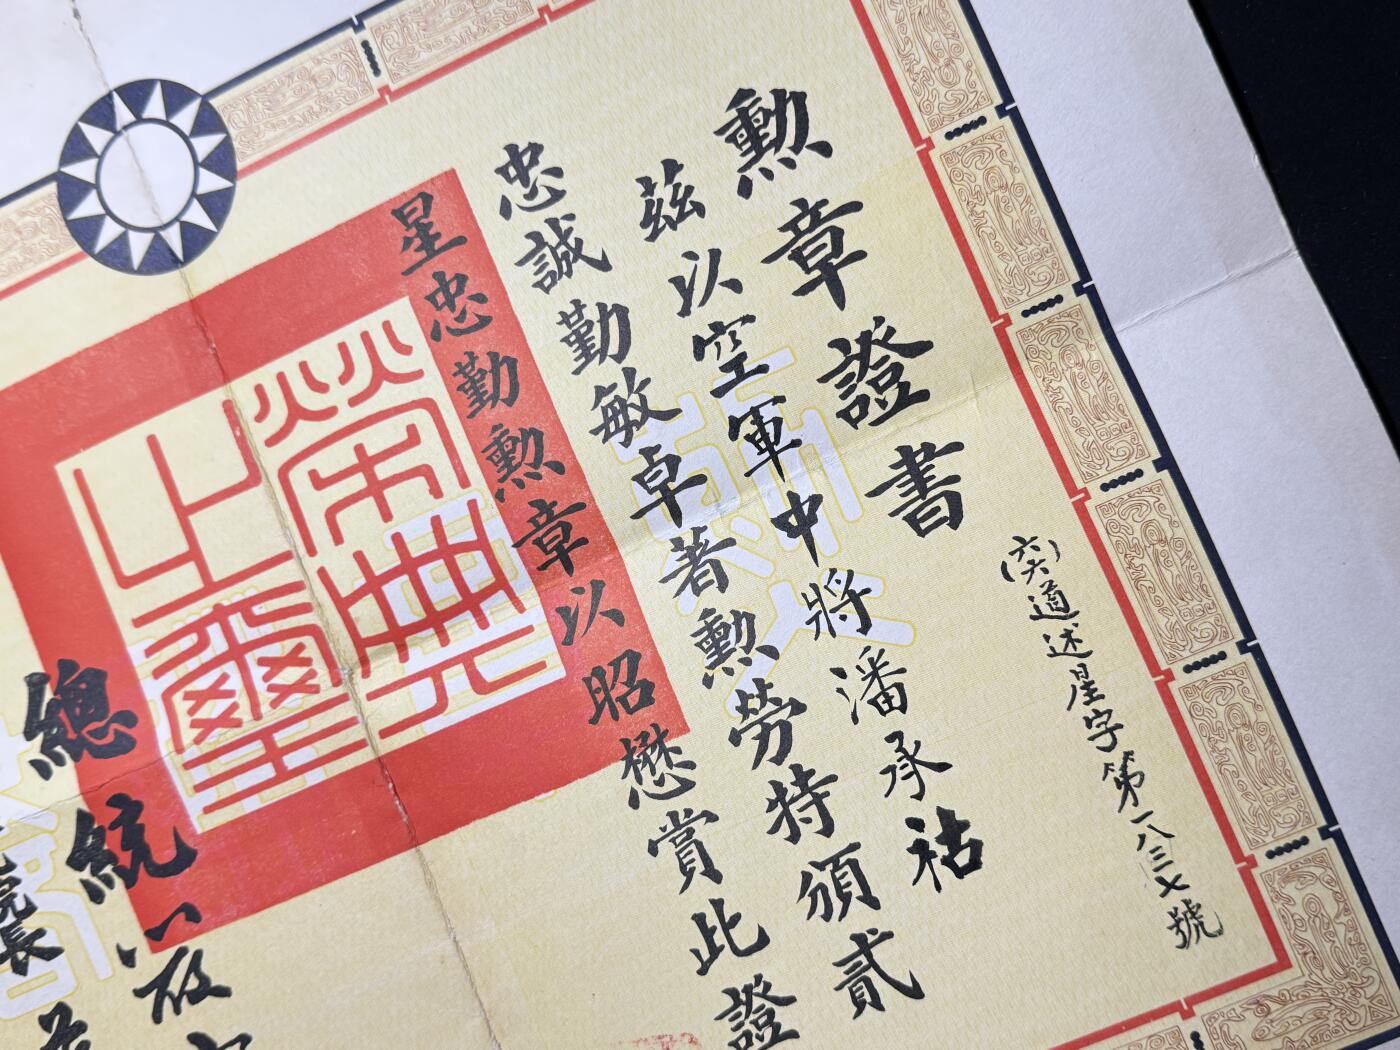 勳章證書
(六六)道述星字第一八三七號
茲以空軍中將潘承祜
忠誠勤敏卓著勳勞特頒貳
星忠勤勳章以昭懋賞此證
榮典之璽
總統
院長